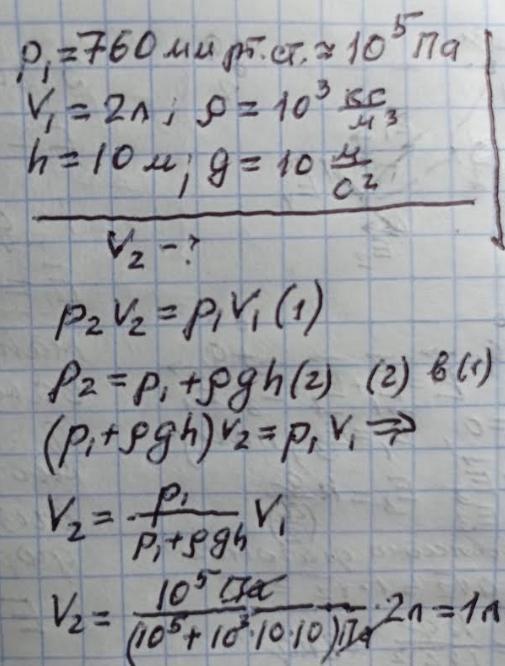 p₁ = 760 мм рт. ст. ≈ 10⁵ Па
V₁ = 2л; ρ = 10³ кг/м³
h = 10 м; g = 10 м/с²
V₂ - ?
p₂ V₂ = p₁ V₁ (1)
p₂ = p₁ + ρgh (2) (2) в (1)
(p₁ + ρgh) V₂ = p₁ V₁ ⇒
V₂ = p₁/(p₁ + ρgh) V₁
V₂ = 10⁵ Па/((10⁵ + 10³·10·10) Па) · 2л = 1л